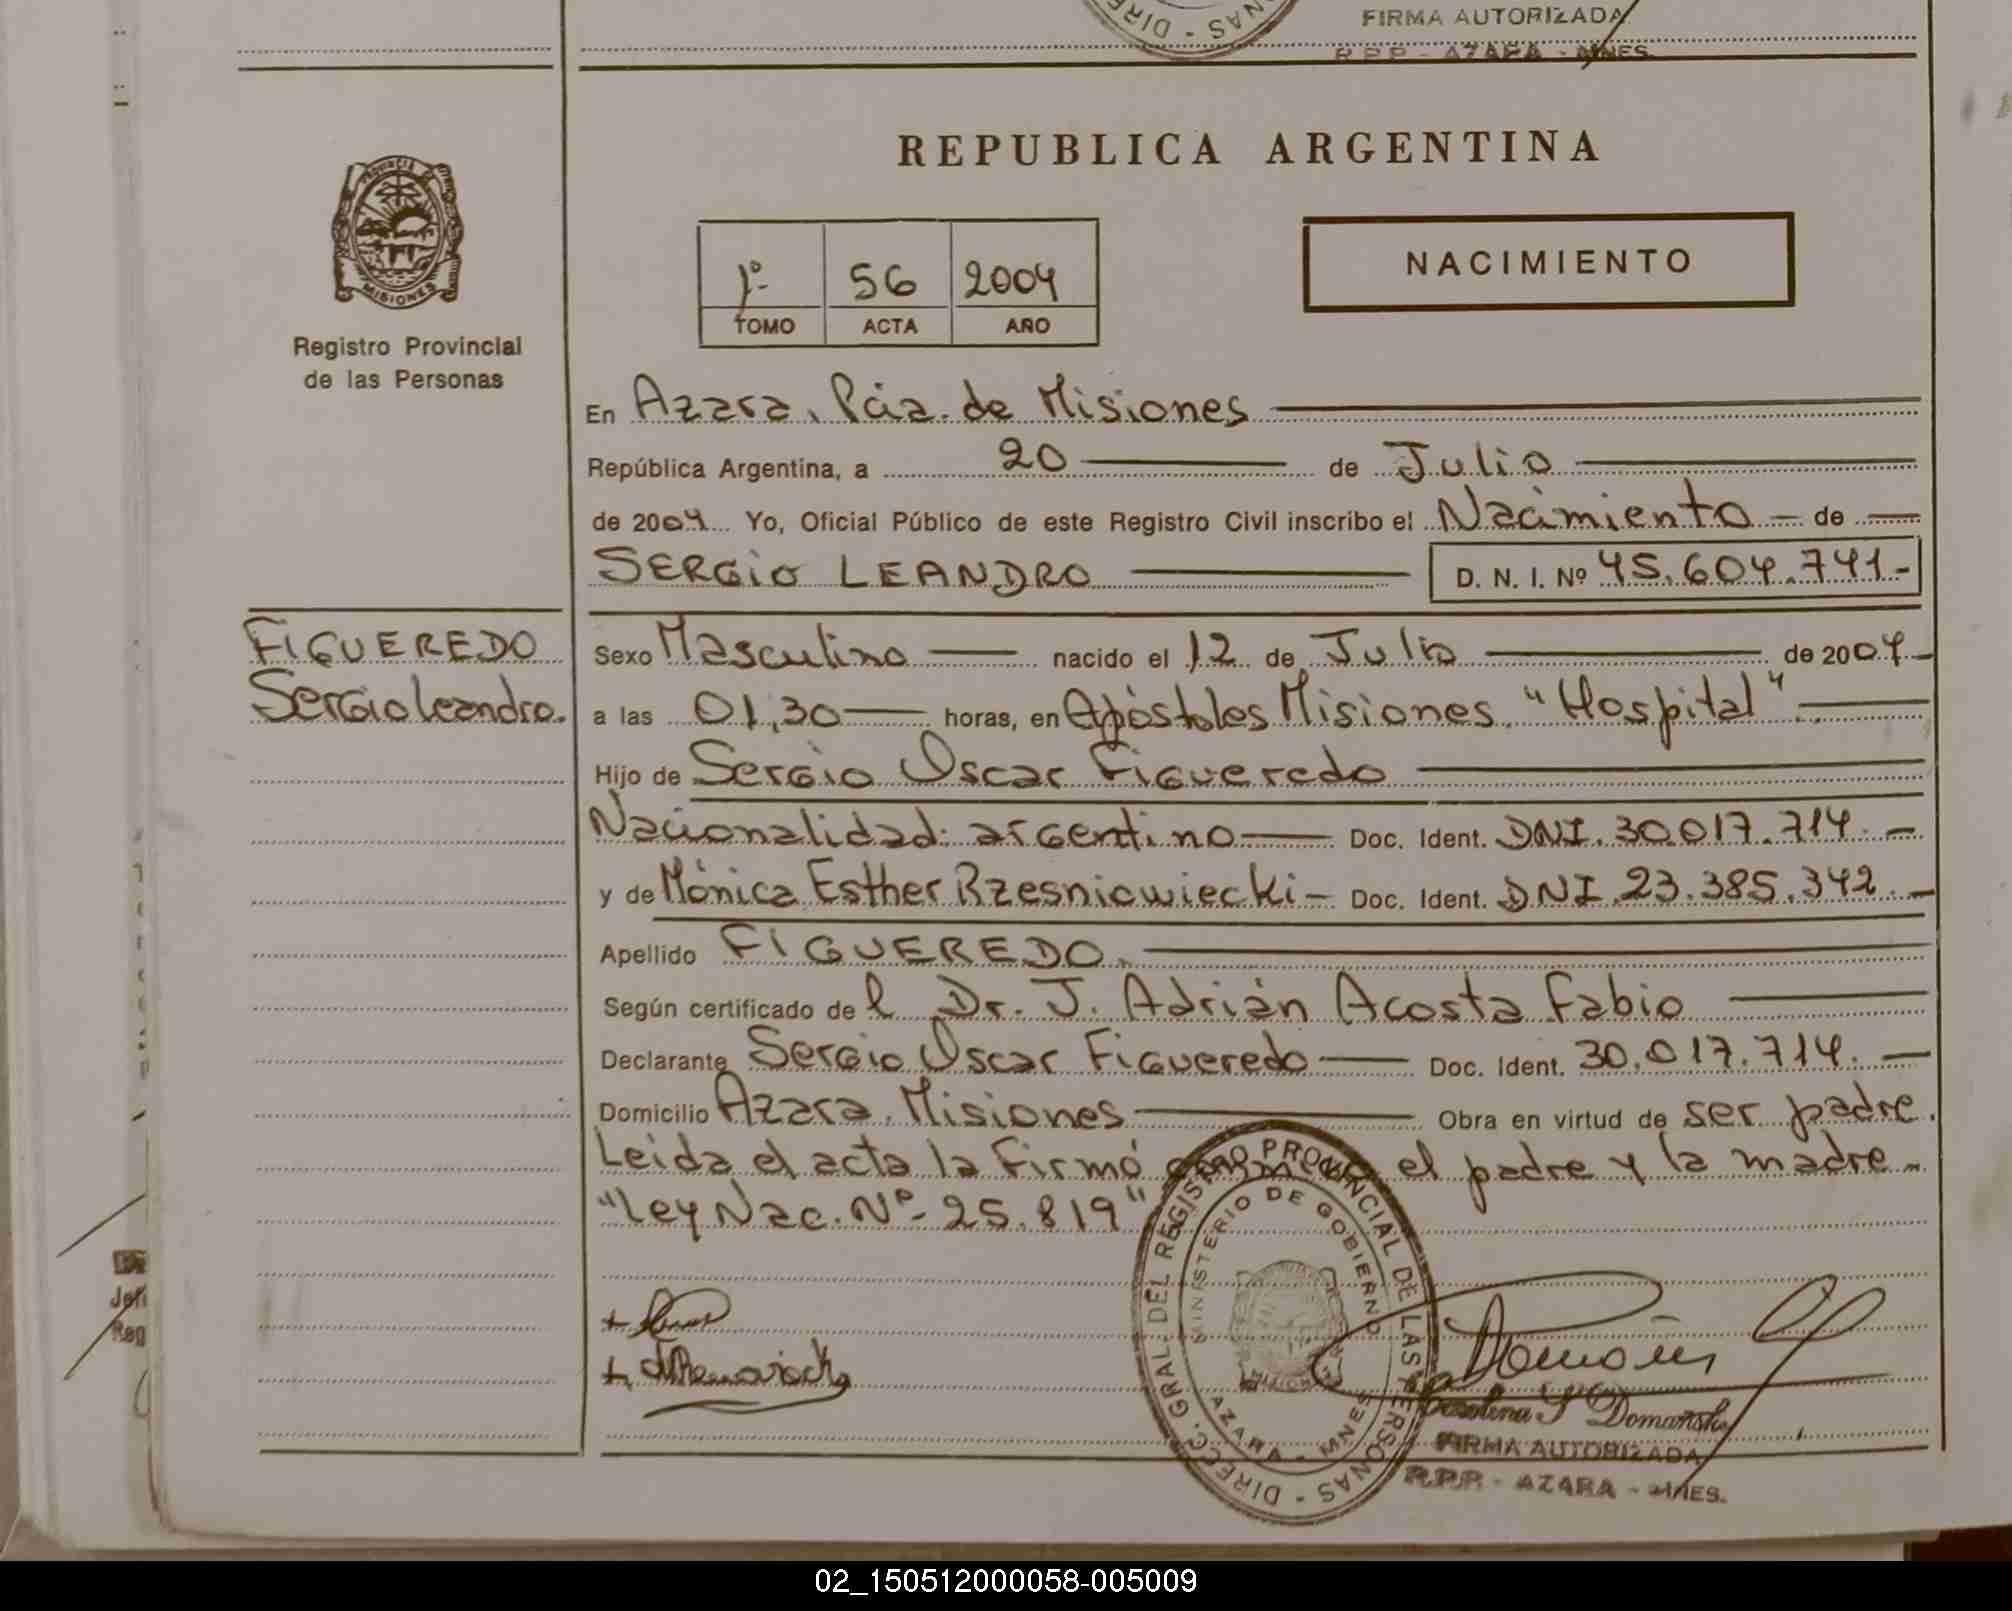 FIRMA AUTORIZADA
R.P.P. - AZARA - MNES.
REPUBLICA ARGENTINA
PROVINCIA DE MISIONES
Registro Provincial
de las Personas
1º 56 2004
TOMO ACTA AÑO
NACIMIENTO
En Azara, Pcia. de Misiones
República Argentina, a 20 de Julio
de 2004 Yo, Oficial Público de este Registro Civil inscribo el Nacimiento de
SERGIO LEANDRO D. N. I. Nº 45.604.741-
FIGUEREDO
Sergio Leandro.
Sexo Masculino nacido el 12 de Julio de 2004
a las 01,30 horas, en Apóstoles Misiones "Hospital"
Hijo de Sergio Oscar Figueredo
Nacionalidad: argentino Doc. Ident. DNI. 30.017.714.
y de Mónica Esther Rzesniowiecki Doc. Ident. DNI. 23.385.342.
Apellido FIGUEREDO.
Según certificado de l Dr. J. Adrián Acosta Fabio
Declarante Sergio Oscar Figueredo Doc. Ident. 30.017.714.
Domicilio Azara, Misiones Obra en virtud de ser padre.
Leida el acta la Firmó el padre y la madre
"Ley Nac. Nº 25.819"
DIRECC. GRAL. DEL REGISTRO PROVINCIAL DE LAS PERSONAS
MINISTERIO DE GOBIERNO
AZARA - MNES
Domanski
FIRMA AUTORIZADA
R.P.P. - AZARA - MNES.
02_150512000058-005009